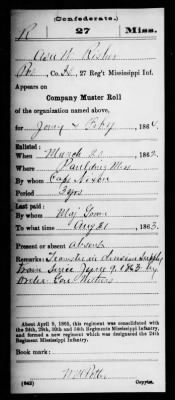 (Confederate.)
R 27 Miss.
Asa W.
Pvt., Co. 27 Reg't Mississippi Inf.
Appears on
Company Muster Roll
of the organization named above,
for Jany & Feby, 186
Enlisted:
When March 20, 1862
Where Paulding Miss
By whom Capt Nixon
Period 3 yrs
Last paid:
By whom Maj
To what time Aug 31, 1863.
Present or absent Absent
Remarks: Transfer in division Supply
train Since 9, 1863 by
order
About April 9, 1865, this regiment was consolidated with
the 24th, 29th, 30th and 34th Regiments Mississippi Infantry,
and formed a new regiment which was designated the 24th
Regiment Mississippi Infantry.
Book mark:
(642) Copyist.